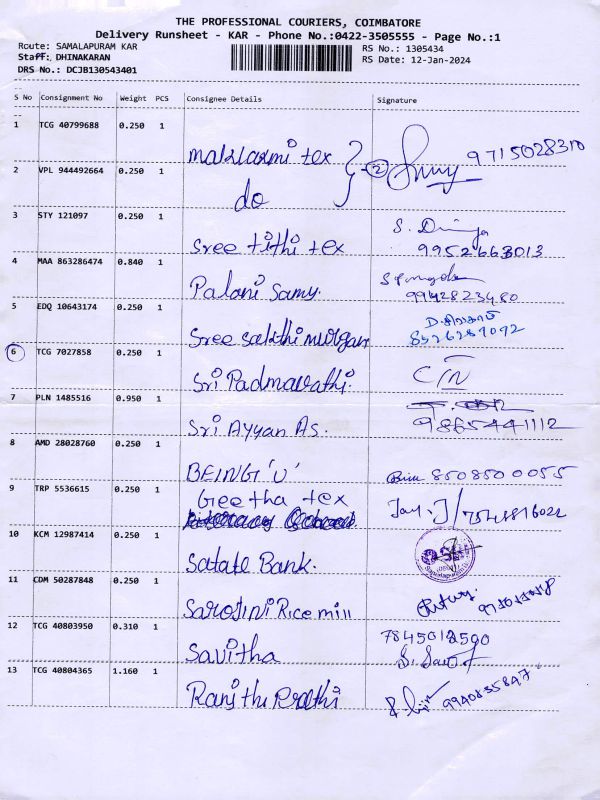 THE PROFESSIONAL COURIERS, COIMBATORE
Delivery Runsheet - KAR - Phone No.:0422-3505555 - Page No.:1
Route: SAMALAPURAM KAR
RS No.: 1305434
Staff: DHINAKARAN
RS Date: 12-Jan-2024
DRS No.: DCJB130543401
S No Consignment No Weight PCS Consignee Details Signature
1 TCG 40799688 0.250 1
maklaxmi tex 2 9715028310
2 VPL 944492664 0.250 1
do
3 STY 121097 0.250 1
Sree tithi tex 9952663013
4 MAA 863286474 0.840 1
Palani Samy. 9942823480
5 EDQ 10643174 0.250 1
Sree sakthi murgan 8526287092
6 TCG 7027858 0.250 1
Sri Padmavathi.
7 PLN 1485516 0.950 1
Sri Ayyan As. 9865441112
8 AMD 28028760 0.250 1
BEING 'U' 8508500055
9 TRP 5536615 0.250 1
Geetha tex
10 KCM 12987414 0.250 1
Satate Bank.
11 CDM 50287848 0.250 1
Sarojini Rice mill
12 TCG 40803950 0.310 1
Savitha 7845012590
13 TCG 40804365 1.160 1
9940835847